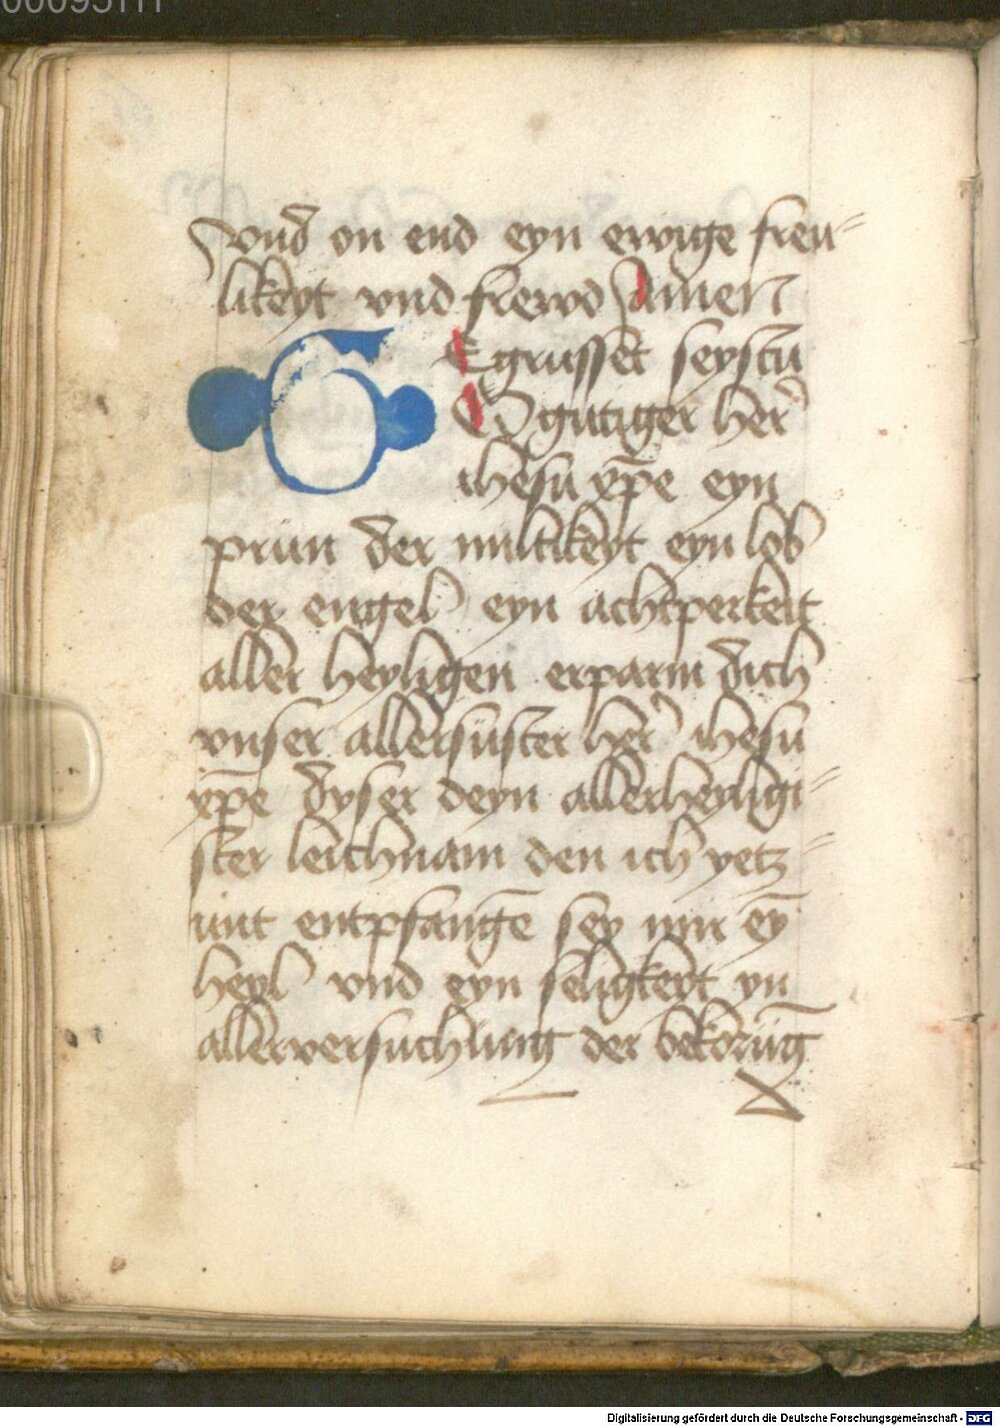 vnd on end eyn ewige freu-
likeyt vnd frewd Amen
GEgrusset seystu
O gutiger her
ihesu xpe eyn
prun der miltikeyt eyn lob
der engel eyn achtperkeit
aller heyligen erparm dich
vnser allersuster her ihesu
xpe dyser deyn allerheyligi-
ster leichnam den ich yetz-
unt entpfange sey mir ey
heyl vnd eyn seligkeyt yn
aller versuchung der bekorug
Digitalisierung gefördert durch die Deutsche Forschungsgemeinschaft - DFG